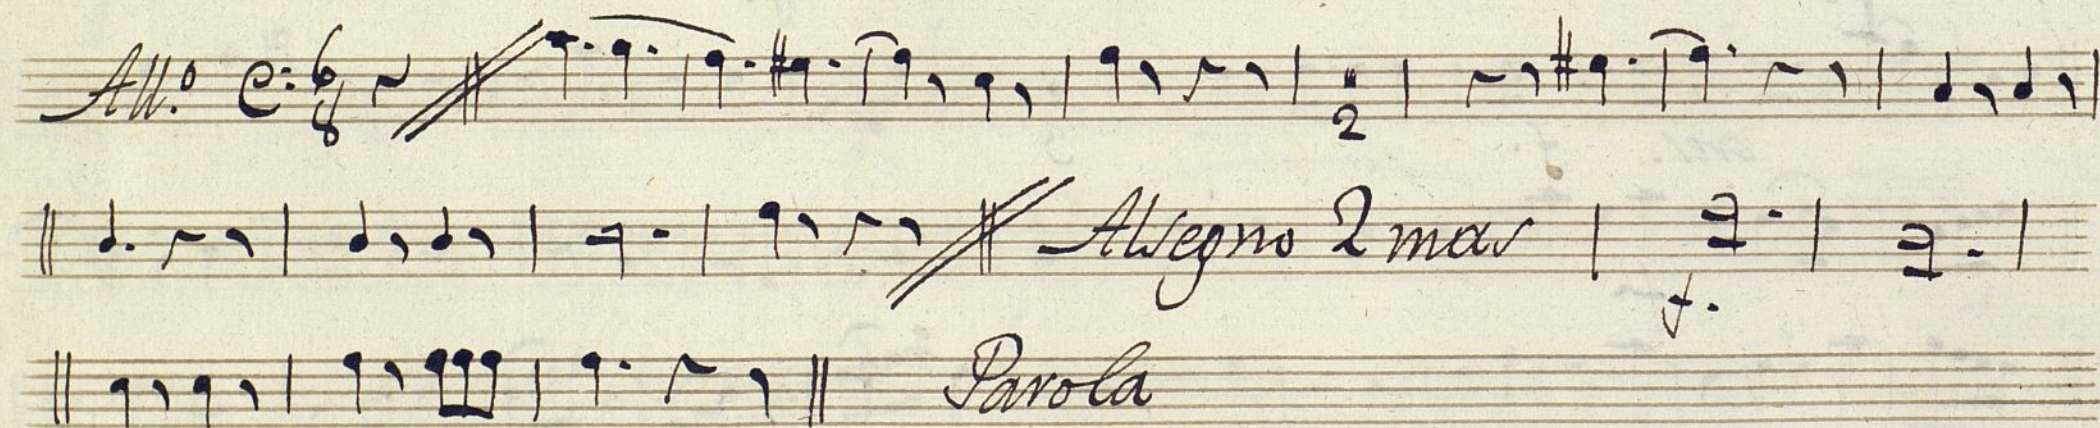 All.º 6 8
2
Al Segno 2 mas
f.
Parola